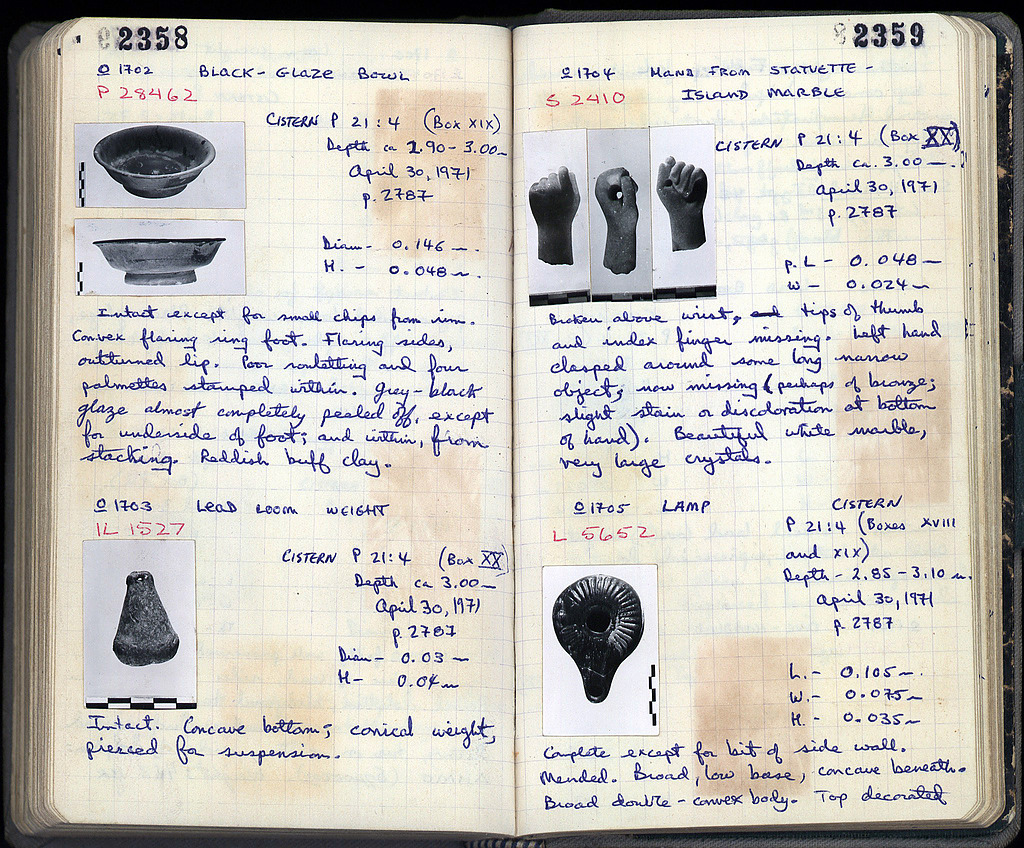 2358
O 1702 BLACK-GLAZE BOWL
P 28462
CISTERN P 21:4 (BOX XIX)
Depth ca 2.90-3.00 m
April 30, 1971
p. 2787
Diam- 0.146 m.
H. - 0.048 m.
Intact except for small chips from rim.
Convex flaring ring foot. Flaring sides,
outturned lip. Poor rouletting and four
palmettes stamped within. Gray-black
glaze almost completely peeled off, except
for underside of foot; and within, from
stacking. Reddish buff clay.
O 1703 LEAD LOOM WEIGHT
IL 1527
CISTERN P 21:4 (Box XX)
Depth ca 3.00 m
April 30, 1971
p. 2787
Diam- 0.03 m
H- 0.04 m
Intact. Concave bottom; conical weight,
pierced for suspension.
2359
O 1704 HAND FROM STATUETTE -
S 2410 ISLAND MARBLE
CISTERN P 21:4 (Box XX)
Depth ca. 3.00 m.
April 30, 1971
p. 2787
p. L - 0.048 m
W - 0.024 m
Broken above wrist, tips of thumb
and index finger missing. Left hand
clasped around some long narrow
object, now missing (perhaps of bronze;
slight stain or discoloration at bottom
of hand). Beautiful white marble,
very large crystals.
O 1705 LAMP CISTERN
L 5652 P 21:4 (Boxes XVIII
and XIX)
Depth - 2.85-3.10 m.
April 30, 1971
p. 2787
L. - 0.105 m.
W. - 0.075 m
H. - 0.035 m
Complete except for bit of side wall.
Mended. Broad, low base, concave beneath.
Broad double-convex body. Top decorated